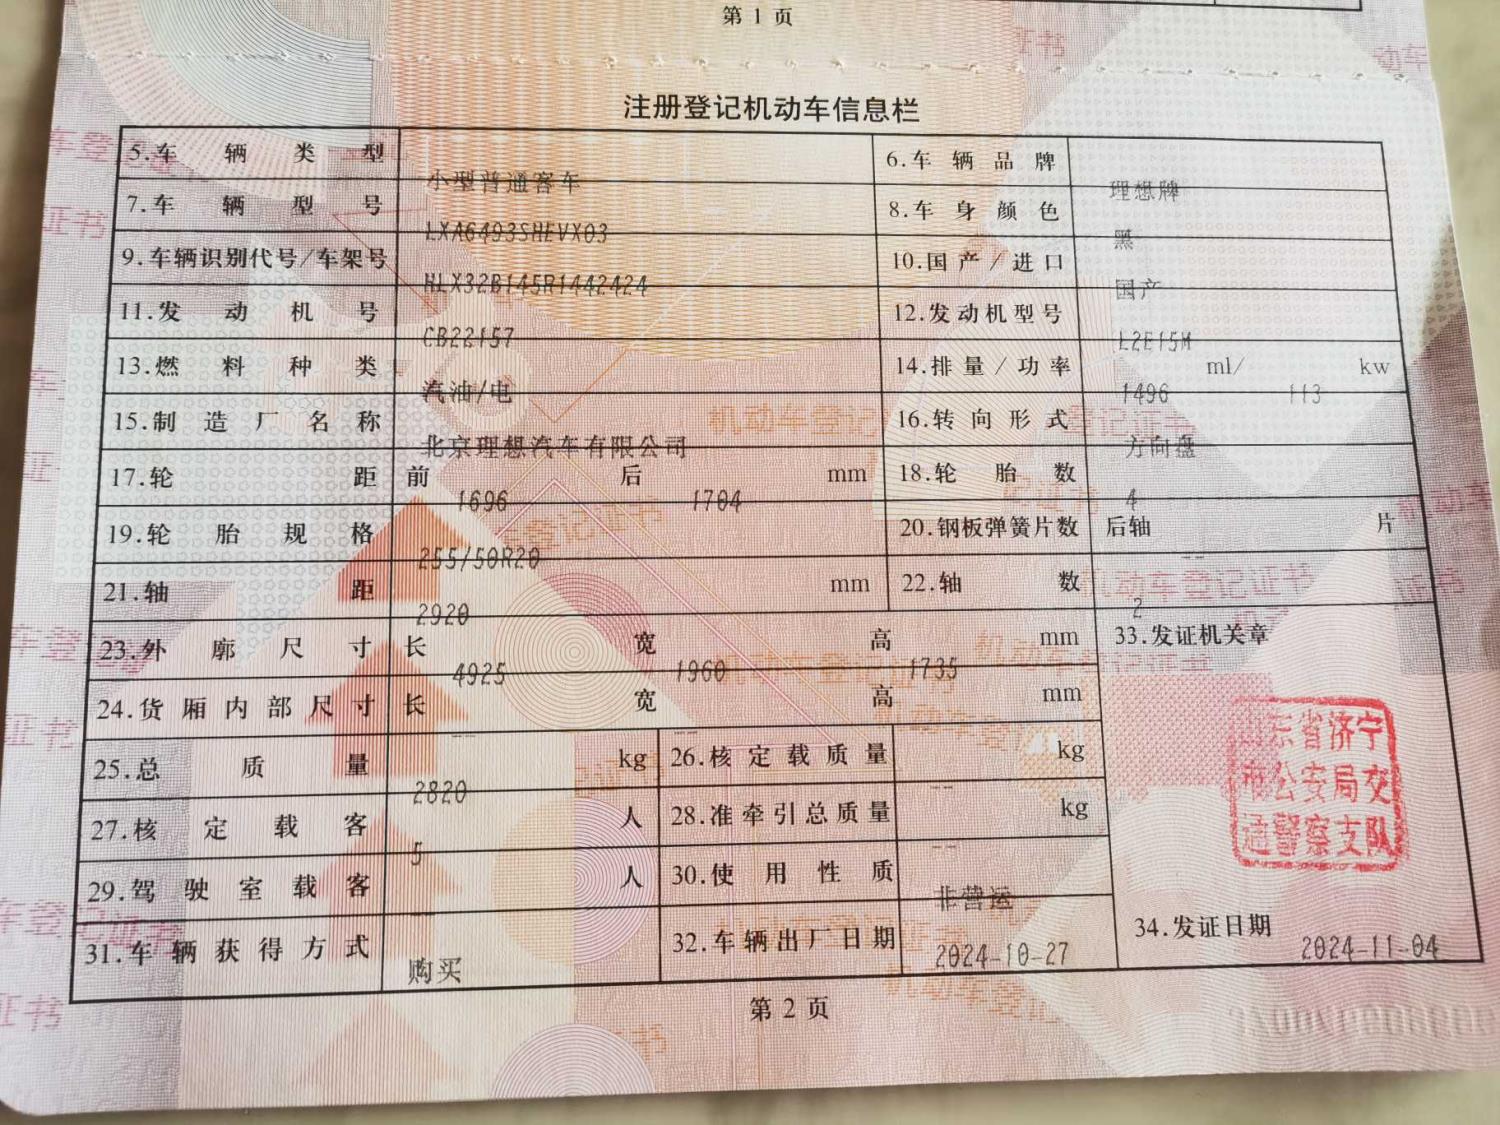 第 1 页
注册登记机动车信息栏
5.车辆类型 小型普通客车 6.车辆品牌 理想牌
7.车辆型号 LXA6493SHEVX03 8.车身颜色 黑
9.车辆识别代号/车架号 HLX32B145R1442424 10.国产/进口 国产
11.发动机号 CB22157 12.发动机型号 L2E15M
13.燃料种类 汽油/电 14.排量/功率 1496 ml/ 113 kw
15.制造厂名称 北京理想汽车有限公司 16.转向形式 方向盘
17.轮距 前 1696 后 1704 mm 18.轮胎数 4
19.轮胎规格 255/50R20 20.钢板弹簧片数 后轴 -- 片
21.轴距 2920 mm 22.轴数 2
23.外廓尺寸 长 4925 宽 1960 高 1735 mm 33.发证机关章
24.货厢内部尺寸 长 -- 宽 -- 高 -- mm
山东省济宁
市公安局交
通警察支队
25.总质量 2820 kg 26.核定载质量 -- kg
27.核定载客 5 人 28.准牵引总质量 -- kg
29.驾驶室载客 -- 人 30.使用性质 非营运
31.车辆获得方式 购买 32.车辆出厂日期 2024-10-27 34.发证日期 2024-11-04
第 2 页